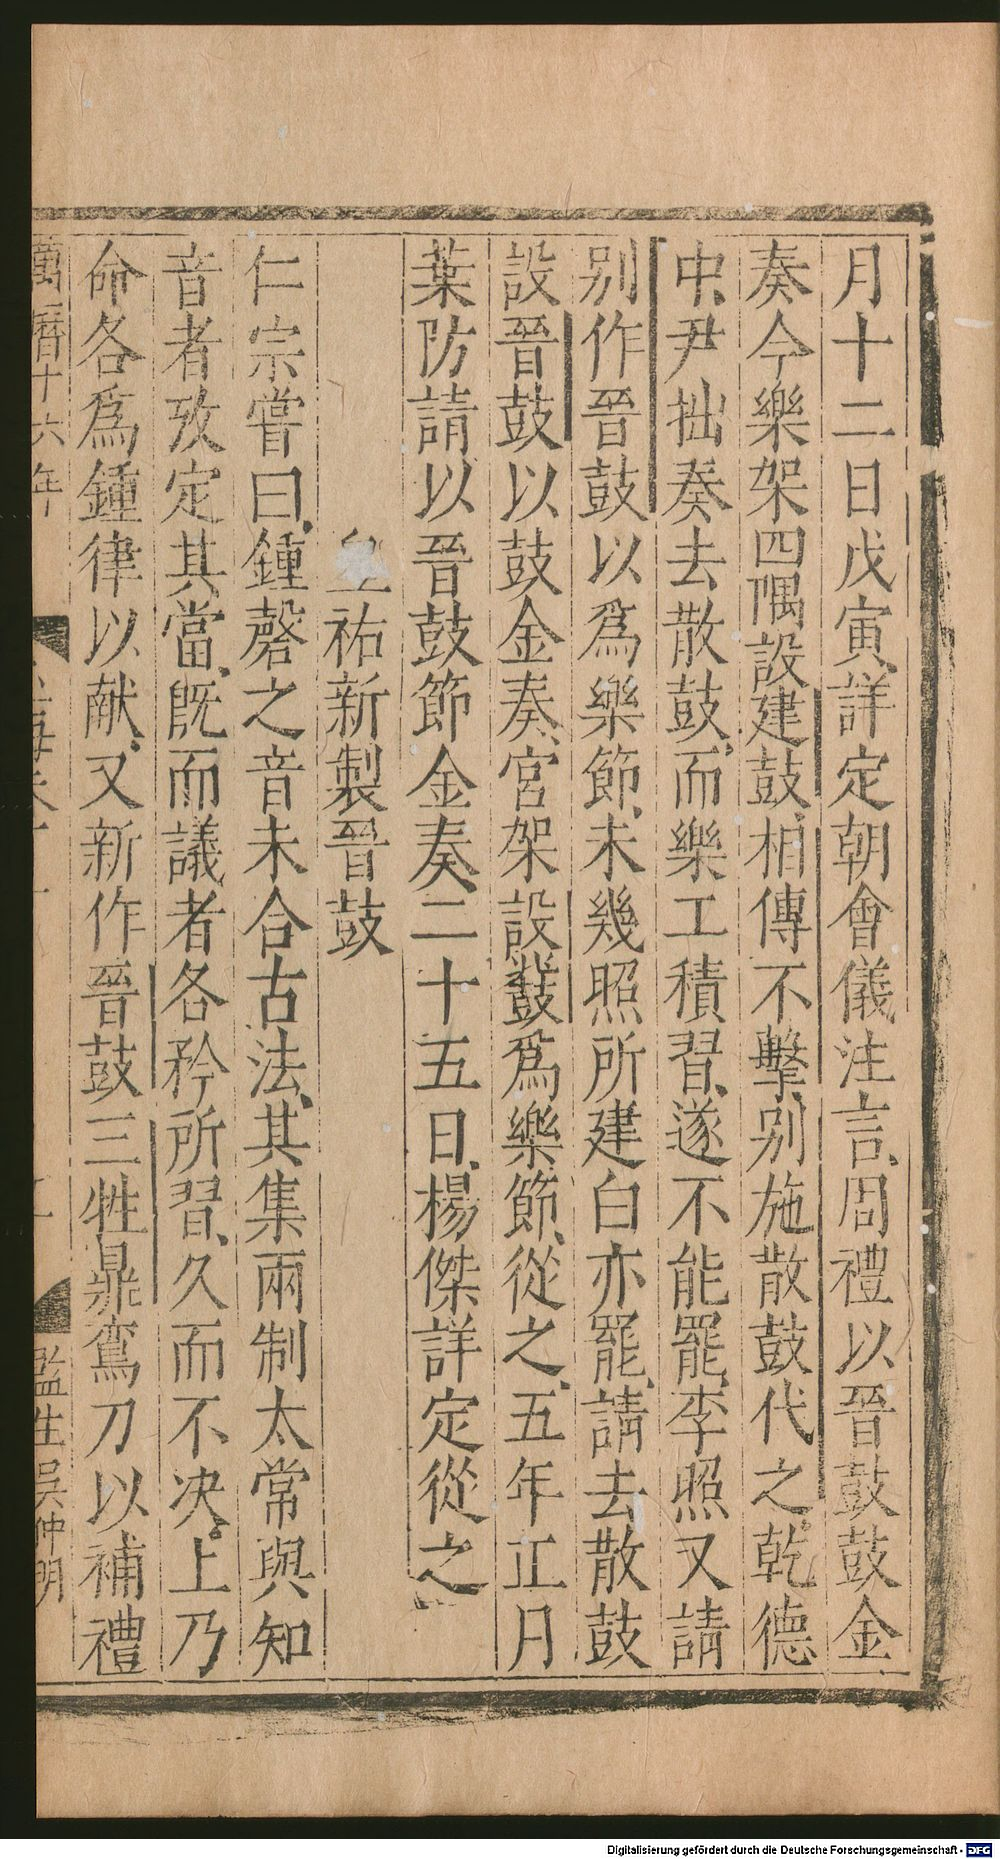 月十二日戊寅詳定朝會儀注言周禮以晉鼓鼓金
奏今樂架四隅設建鼓相傳不擊别施散鼓代之乾德
中尹拙奏去散鼓而樂工積習遂不能罷李照又請
别作晉鼓以爲樂節未幾照所建白亦罷請去散鼓
設晉鼓以鼓金奏宮架設鼖爲樂節從之五年正月
葉防請以晉鼓節金奏二十五日楊傑詳定從之
祐新製晉鼓
仁宗嘗曰鍾磬之音未合古法其集兩制太常與知
音者攷定其當既而議者各矜所習久而不決上乃
命各爲鍾律以献又新作晉鼓三牲鼎鸞刀以補禮
萬曆十六年
監生吳仲明
Digitalisierung gefördert durch die Deutsche Forschungsgemeinschaft - DFG